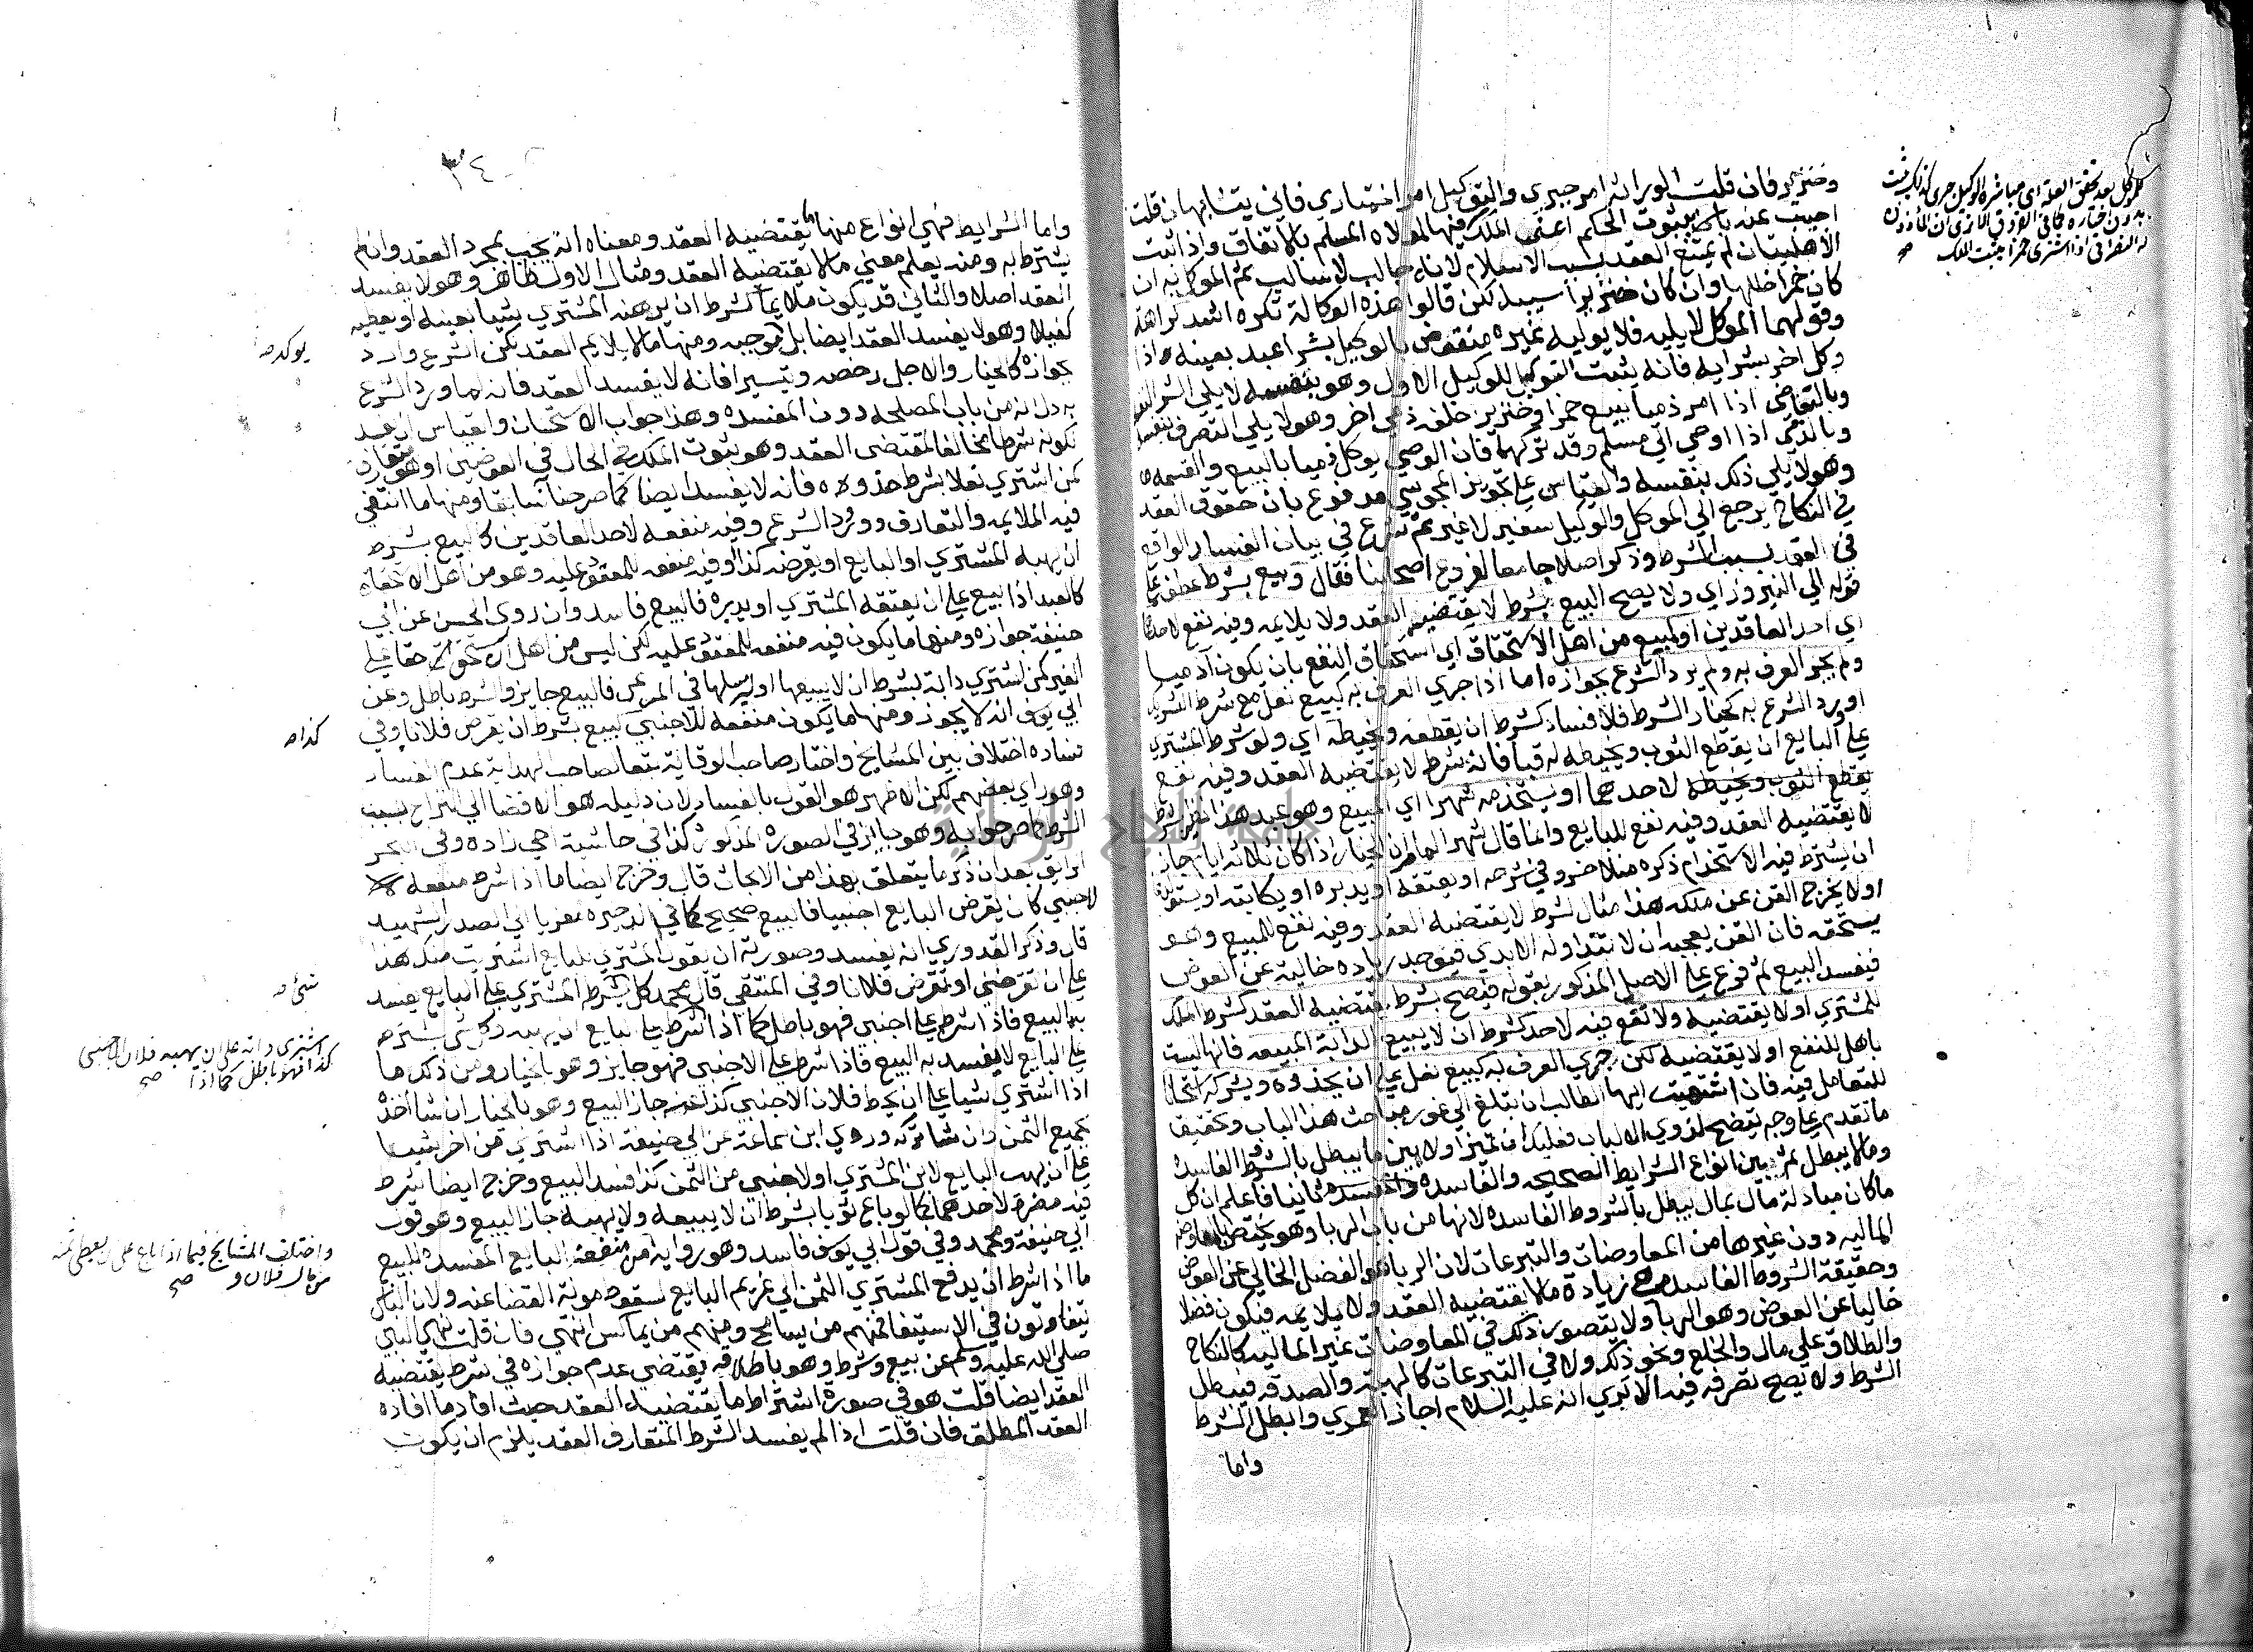 وخنزير فان قلت الوراثة امر جبري والتوكيل امر اختياري فاني يتشابهان قلت
اجيب عنه بان ثبوت الحكم اعني الملك فيها للمولاه المسلم بالاتفاق واذا ثبت
الاهليتان لم يمتنع العقد بسبب الاسلام لانه جالب لا سالب ثم الموكل به ان
كان خمرا خللها وان كان خنزيرا سيبه لكن قالوا هذه الوكالة تكره اشد كراهة
وقولهما الموكل لا يليه فلا يوليه غيره منقوض بالوكيل بشرا عبد بعينه اذا
وكل اخر بشرايه فانه يثبت التوكيل للوكيل الاول وهو بنفسه لا يلي الشرا لنفسه
وبالقاضي اذا امر ذميا ببيع خمرا وخنزير خلفه ذمي اخر وهو لا يلي التصرف بنفسه
وبالذمي اذا اوصي الي مسلم وقد تركهما فان الوصي يوكل ذميا بالبيع والقسمة
وهو لا يلي ذلك بنفسه والقياس علي تزويج المجوسي مدفوع بان حقوق العقد
في النكاح يرجع الي الموكل والوكيل سفير لا غير ثم شرع في بيان الفساد الواقع
في العقد بسبب الشرط وذكر اصلا جامعا لفروع اصحابنا فقال وبيع بشرط عطف علي
قوله الي النيروز اي ولا يصح البيع بشرط لا يقتضيه العقد ولا يلايمه وفيه نفع لاحدهما
اي احد العاقدين او لمبيع من اهل الاستحقاق اي استحقاق النفع بان يكون آدميا
ولم يجر العرف به ولم يرد الشرع بجوازه اما اذا جري العرف به كبيع نعل مع شرط التشريك
او ورد الشرع به كخيار الشرط فلا فساد كشرط ان يقطعه ويخيطه اي ولو شرط المشتري
علي البايع ان يقطع الثوب ويخيطه له قباء فانه شرط لا يقتضيه العقد وفيه نفع
يقطع الثوب ويخيطه لاحدهما او يستخدمه شهرا اي المبيع وهو عبد هذا نظير شرط
لا يقتضيه العقد وفيه نفع للبايع وانما قال شهرا لما مر ان الخيار اذا كان ثلاثة ايام جاز
ان يشترط فيه الاستخدام ذكره منلا خسرو في شرحه او يعتقه او يدبره او يكاتبه او يستولدها
او لا يخرج القن عن ملكه هذا مثال لشرط لا يقتضيه العقد وفيه نفع للمبيع وهو
يستحقه فان القن يعجبه ان لا تتداوله الايدي فيوجد زيادة خالية عن العوض
فيفسد البيع ثم فرع علي الاصل المذكور بقوله فيصح بشرط يقتضيه العقد كشرط الملك
للمشتري او لا يقتضيه ولا نفع فيه لاحد كشرط ان لا يبيع الدابة المبيعه فانها ليست
باهل للنفع او لا يقتضيه لكن جري العرف به كبيع نعل علي ان يحذوه ويشركه استحسانا
للتعامل فيه فان اشتهيت ايها الطالب ان تبلغ الي غور مباحث هذا الباب وتحقيق
ما تقدم علي وجه يتضح لذوي الالباب فعليك ان تميز اولا بين ما يبطل بالشروط الفاسده
وما لا يبطل ثم بين انواع الشرايط الصحيحه والفاسده والمفسده ثانيا فاعلم ان كل
ما كان مبادلة مال بمال يبطل بالشروط الفاسده لانها من باب الربا وهو يختص بالمعاوضه
الماليه دون غيرها من المعاوضات والتبرعات لان الربا هو الفضل الخالي عن العوض
وحقيقة الشروط الفاسده هي زيادة ما لا يقتضيه العقد ولا يلايمه فيكون فضلا
خاليا عن العوض وهو الربا ولا يتصور ذلك في المعاوضات غير الماليه كالنكاح
والطلاق علي مال والخلع ونحو ذلك ولا في التبرعات كالهبة والصدقه فيبطل
الشرط ولا تصح تصرفه فيه الا يري انه عليه السلام اجاز العمري وابطل الشرط
واما
لموكل بعد تحقق العلة اي مباشرة الوكيل جري كذلك ثبت
بدون اختياره كما في الاذن الا تري ان المأذون
له النصراني اذا اشتري خمرا يثبت الملك
صح
٣٤
واما الشرايط فهي انواع منها ما يقتضيه العقد ومعناه انه يجب بمجرد العقد وان لم
يشترط به ومنه يعلم معني ما لا يقتضيه العقد ومثال الاول ظاهر وهو لا يفسد
العقد اصلا والثاني قد يكون ملايما كشرط ان يرهنه المشتري شيا بعينه او يعطيه
كفيلا وهو لا يفسد العقد ايضا بل موجبه ومنها ما لا يلايم العقد لكن الشرع وارد
بجوازه كالخيار والاجل رخصه وتيسيرا فانه لا يفسد العقد فانه لما ورد الشرع
به دل انه من باب المصلحه دون المفسده وهذا جواب الاستحسان والقياس ان يفسد
لكونه شرطا مخالفا لمقتضي العقد وهو ثبوت الملك في الحال في العوضين او هو متعارف
كمن اشتري نعلا بشرط حذوه فانه لا يفسد ايضا كما صرحنا سابقا ومنها ما انتفي
فيه الملايمه والتعارف وورود الشرع وفيه منفعه لاحد العاقدين كالبيع بشرط
ان يهبه المشتري او البايع او يقرضه كذا او فيه منفعه للمعقود عليه وهو من اهل الاستحقاق
كالعبد اذا بيع علي ان يعتقه المشتري او يدبره فالبيع فاسد وان روي الحسن عن ابي
حنيفة جوازه ومنها ما يكون فيه منفعه للمعقود عليه لكن ليس من اهل ان يستحق حقا علي
الغير كمن اشتري دابة بشرط ان لا يبيعها او يرسلها في المرعي فالبيع جايز والشرط باطل وعن
ابي يوسف انه لا يجوز ومنها ما يكون منفعه للاجنبي كبيع بشرط ان يقرض فلانا وفي
فساده اختلاف بين المشايخ واختار صاحب الوقاية تبعا لصاحب الهداية عدم الفساد
وهو راي بعضهم لكن الاظهر هو القول بالفساد لان دليله هو الافضا الي النزاع بسبب
الشرط مر جوابه وهو جايز في الصورة المذكوره كذا في حاشية اخي زاده وفي البحر
الرايق بعد ان ذكر ما يتعلق بهذا من الابحاث قال وخرج ايضا ما اذا شرط منفعه
لاجنبي كان يقرض البايع اجنبيا فالبيع صحيح كما في الذخيره معزيا الي الصدر الشهيد
قال وذكر القدوري انه يفسد وصورته ان يقول المشتري للبايع اشتريت منك هذا
علي ان تقرضني او تقرض فلانا وفي المنتقي قال محمد كل شي يشرطه المشتري علي البايع يفسد
به البيع فاذا شرط علي اجنبي فهو باطل كما اذا شرط علي البايع ان يهبه وكل شي يشترط
علي البايع لا يفسد به البيع فاذا شرط علي الاجنبي فهو جايز وهو بالخيار ومن ذلك ما
اذا اشتري شيا علي ان يحط فلان الاجنبي كذا عنه جاز البيع وهو بالخيار ان شا اخذه
بجميع الثمن وان شا تركه وروي ابن سماعة عن ابي حنيفة اذا اشتري من اخر شيا
علي ان يهب البايع لابن المشتري او لاجنبي من الثمن كذا فسد البيع وخرج ايضا شرط
فيه مضرة لاحدهما كما لو باع ثوبا بشرط ان لا يبيعه ولا يهبه جاز البيع وهو قول
ابي حنيفة ومحمد وفي قول ابي يوسف فاسد وهو رواية من منفعة البايع المفسده للبيع
ما اذا شرط ان يدفع المشتري الثمن الي غريم البايع لسقوط مونة القضا عنه ولان الناس
يتفاوتون في الاستيفا فمنهم من يسامح ومنهم من يماكس انتهي فان قلت نهي النبي
صلي الله عليه وسلم عن بيع وشرط وهو باطلاقه يقتضي عدم جوازه في شرط يقتضيه
العقد ايضا قلت هو في صورة اشتراط ما يقتضيه العقد حيث افاد ما افاده
العقد المطلق فان قلت اذا لم يفسد الشرط المتعارف العقد يلزم ان يكون
يوكد صـ
كذا صـ
شئ صـ
اشتري دابة علي ان يهبه فلان الاجنبي
كذا فهو باطل كما اذا
صح
واختلف المشايخ فيما اذا باع علي ان يعطي ثمنه
من مال فلان و
صح